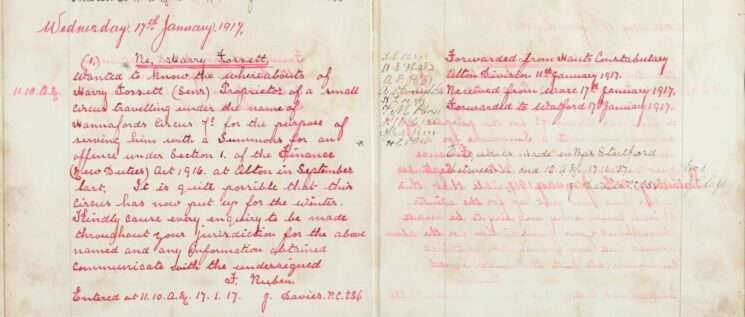 Wednesday. 17th January. 1917.
(1.) Re, Harry Fossett.
11.10.A.M. Wanted to know the whereabouts of
Harry Fossett (Senr) Proprietor of a small
circus travelling under the name of
Hannafords Circus for the purpose of
serving him with a Summons for an
offence under Section 1. of the Finance
(New Duties) Act 1916. at Alton in September
last. It is quite possible that this
circus has now put up for the winter.
Kindly cause every enquiry to be made
throughout your jurisdiction for the above
named and any information obtained
communicate with the undersigned
Entered at 11.10.A.M. 17.1.17. J. Davies. P.C. 236
Forwarded from Hants Constabulary
Alton Division 11th January 1917.
Received from Ware 17th January 1917.
Forwarded to Watford 17th January 1917.
Enquiries made in Bps Stortford
between and 12. 17.1.17.